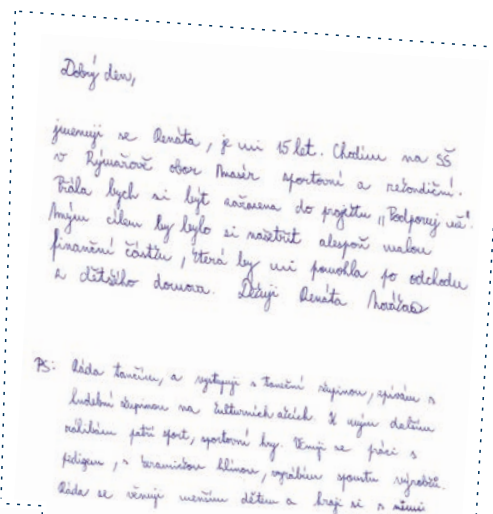 Dobrý den,
jmenuji se Renáta, je mi 15 let. Chodím na SŠ
v Rýmařově obor Masér sportovní a rekondiční.
Přála bych si být zařazena do projektu „Podporuj mě“.
Mým cílem by bylo si našetřit alespoň malou
finanční částku, která by mi pomohla po odchodu
z dětského domova. Děkuji Renáta
PS: Ráda tančím, a vystupuji s taneční skupinou, zpívám s
hudební skupinou na kulturních akcích. K mým dalším
zálibám patří sport, sportovní hry. Věnuji se práci s
pedigem, s keramickou hlínou, vyrábím spoustu výrobků.
Ráda se věnuji menším dětem a hraji si s nimi